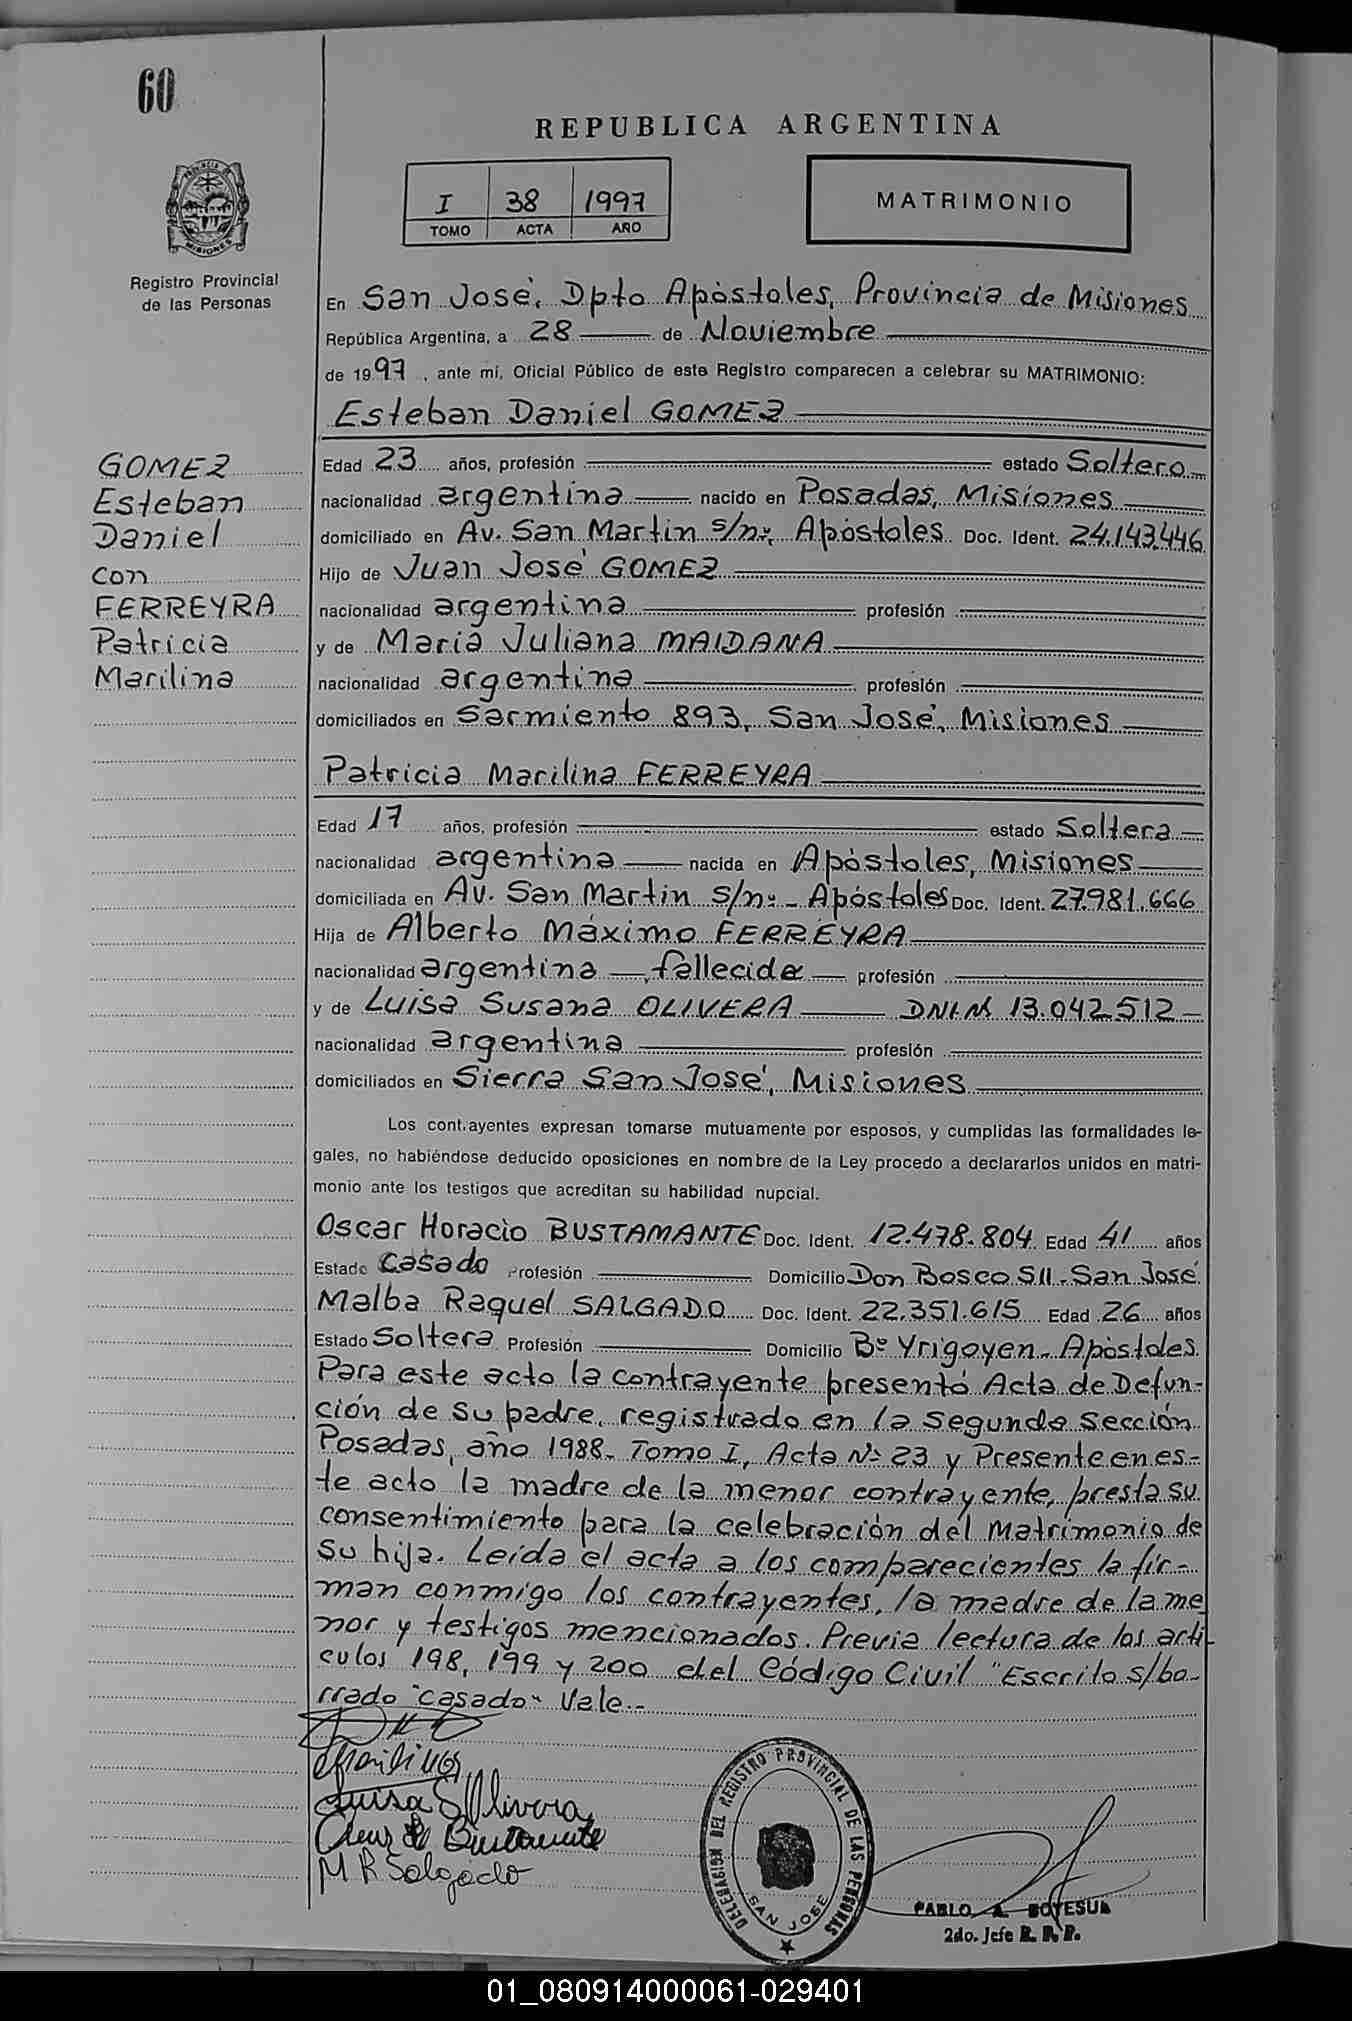 60
REPUBLICA ARGENTINA
PROVINCIA DE MISIONES
I 38 1997
TOMO ACTA AÑO
MATRIMONIO
Registro Provincial
de las Personas
En San José, Dpto Apóstoles, Provincia de Misiones
República Argentina, a 28 de Noviembre
de 1997, ante mí, Oficial Público de este Registro comparecen a celebrar su MATRIMONIO:
Esteban Daniel GOMEZ
GOMEZ
Esteban
Daniel
con
FERREYRA
Patricia
Marilina
Edad 23 años, profesión estado Soltero
nacionalidad argentina nacido en Posadas, Misiones
domiciliado en Av. San Martin s/nº, Apóstoles Doc. Ident. 24.143.446
Hijo de Juan José GOMEZ
nacionalidad argentina profesión
y de María Juliana MAIDANA
nacionalidad argentina profesión
domiciliados en Sarmiento 893, San José, Misiones
Patricia Marilina FERREYRA
Edad 17 años, profesión estado Soltera
nacionalidad argentina nacida en Apóstoles, Misiones
domiciliada en Av. San Martin s/nº - Apóstoles Doc. Ident. 27.981.666
Hija de Alberto Máximo FERREYRA
nacionalidad argentina - fallecido - profesión
y de Luisa Susana OLIVERA DNI.Nº 13.042.512
nacionalidad argentina profesión
domiciliados en Sierra San José, Misiones
Los contrayentes expresan tomarse mutuamente por esposos, y cumplidas las formalidades le-
gales, no habiéndose deducido oposiciones en nombre de la Ley procedo a declararlos unidos en matri-
monio ante los testigos que acreditan su habilidad nupcial.
Oscar Horacio BUSTAMANTE Doc. Ident. 12.478.804 Edad 41 años
Estado Casado Profesión Domicilio Don Bosco 511 - San José
Malba Raquel SALGADO Doc. Ident. 22.351.615 Edad 26 años
Estado Soltera Profesión Domicilio Bº Yrigoyen - Apóstoles
Para este acto la contrayente presentó Acta de Defun-
ción de su padre, registrado en la segunda sección
Posadas, año 1988 - Tomo I, Acta Nº 23 y Presente en es-
te acto la madre de la menor contrayente, presta su
consentimiento para la celebración del Matrimonio de
su hija. Leída el acta a los comparecientes la fir-
man conmigo los contrayentes, la madre de la me
nor y testigos mencionados. Previa lectura de los artí-
culos 198, 199 y 200 del Código Civil "Escrito s/bo-
rrado "casado" Vale.-
Luisa S Olivera
Bustamante
M R Salgado
DELEGACION DEL REGISTRO PROVINCIAL DE LAS PERSONAS
SAN JOSE
PABLO A. BOYESUK
2do. Jefe R. P. P.
01_080914000061-029401